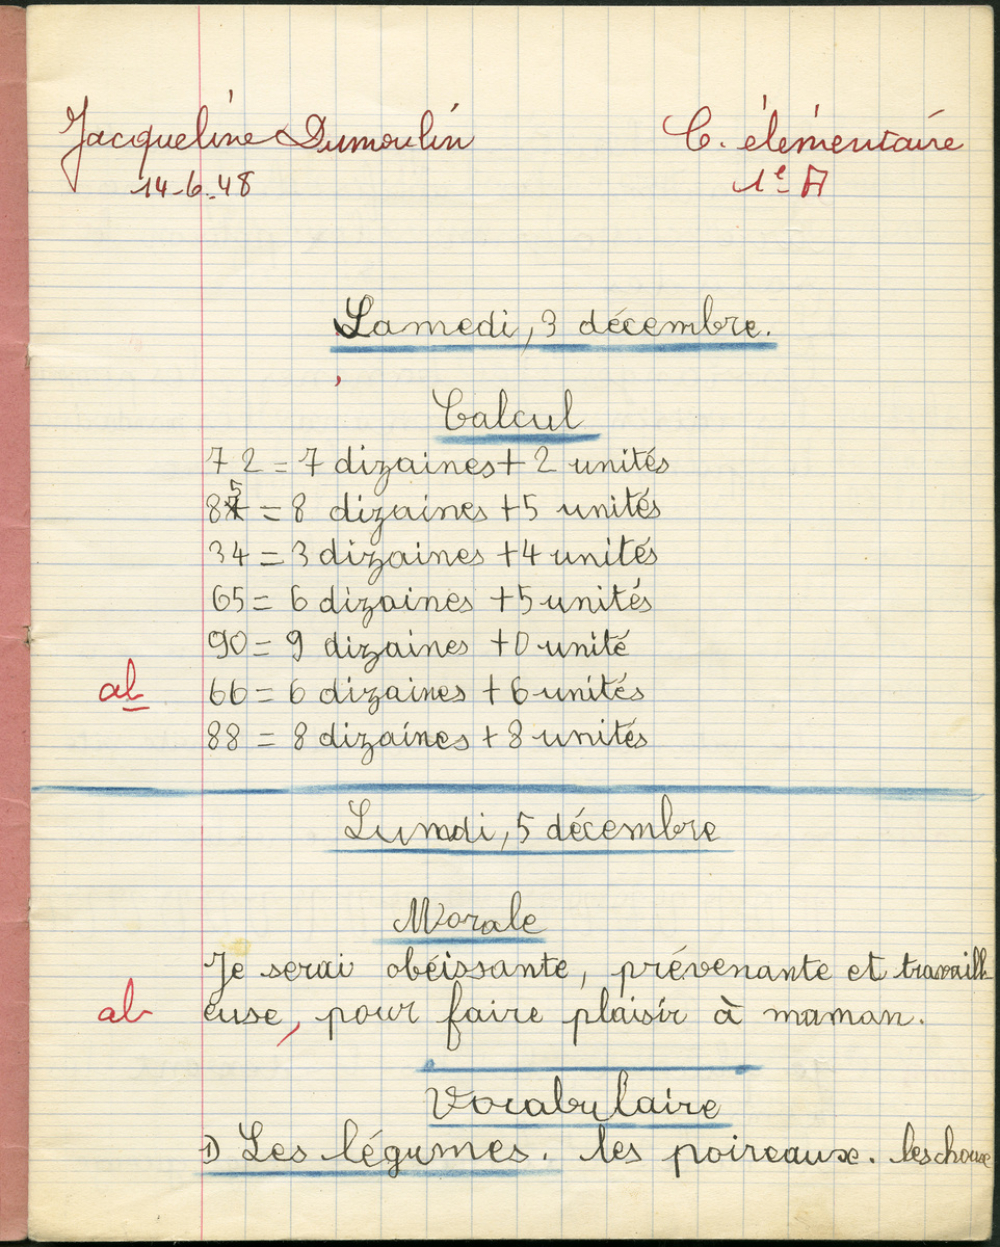 Jacqueline Dumoulin C. élémentaire
14-6-48 1e A
Samedi, 3 décembre.
Calcul
72 = 7 dizaines + 2 unités
85 = 8 dizaines + 5 unités
34 = 3 dizaines + 4 unités
65 = 6 dizaines + 5 unités
90 = 9 dizaines + 0 unité
ab 66 = 6 dizaines + 6 unités
88 = 8 dizaines + 8 unités
Lundi, 5 décembre
Morale
Je serai obéissante, prévenante et travaill
ab euse, pour faire plaisir à maman.
Vocabulaire
1) Les légumes. les poireaux. les choux